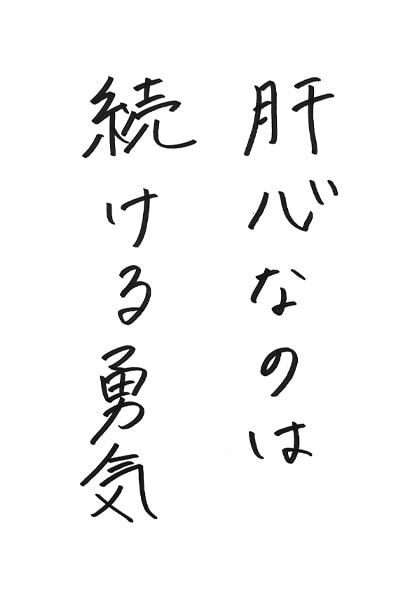 肝心なのは
続ける勇気